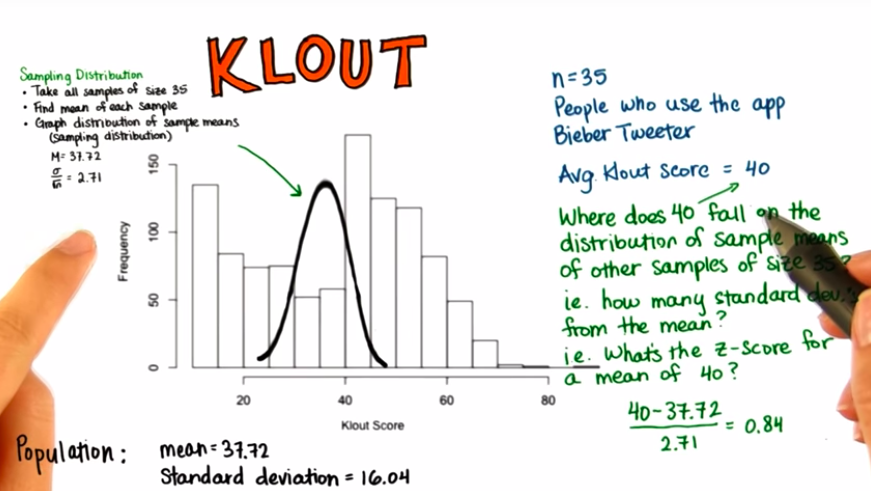 KLOUT
Sampling Distribution
• Take all samples of size 35
• Find mean of each sample
• Graph distribution of sample means
(sampling distribution)
M = 37.72
σ/√n = 2.71
n=35
People who use the app
Bieber Tweeter
Avg. Klout Score = 40
Where does 40 fall on the
distribution of sample means
of other samples of size 35?
ie. how many standard dev.'s
from the mean?
ie. What's the z-score for
a mean of 40?
40-37.72
2.71
= 0.84
Frequency
150
100
50
0
20 40 60 80
Klout Score
Population: mean=37.72
Standard deviation = 16.04